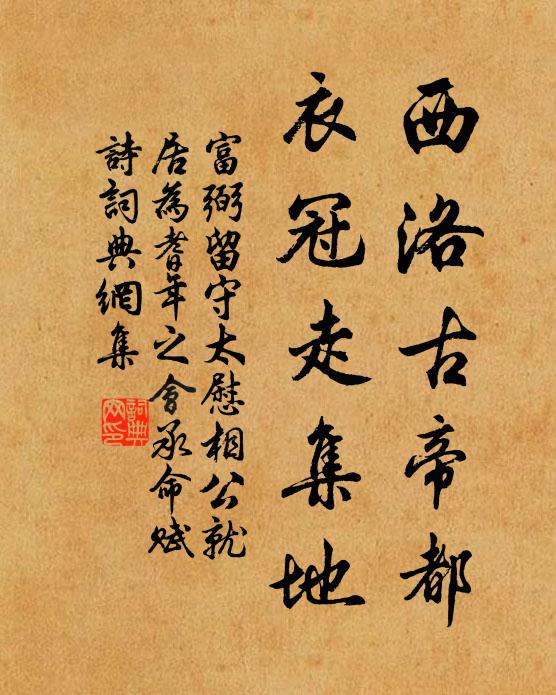 西洛古帝都
衣冠走集地
富弼留守太慰相公就
居為耆年之會承命賦
詩詞典網集
詞典
網印